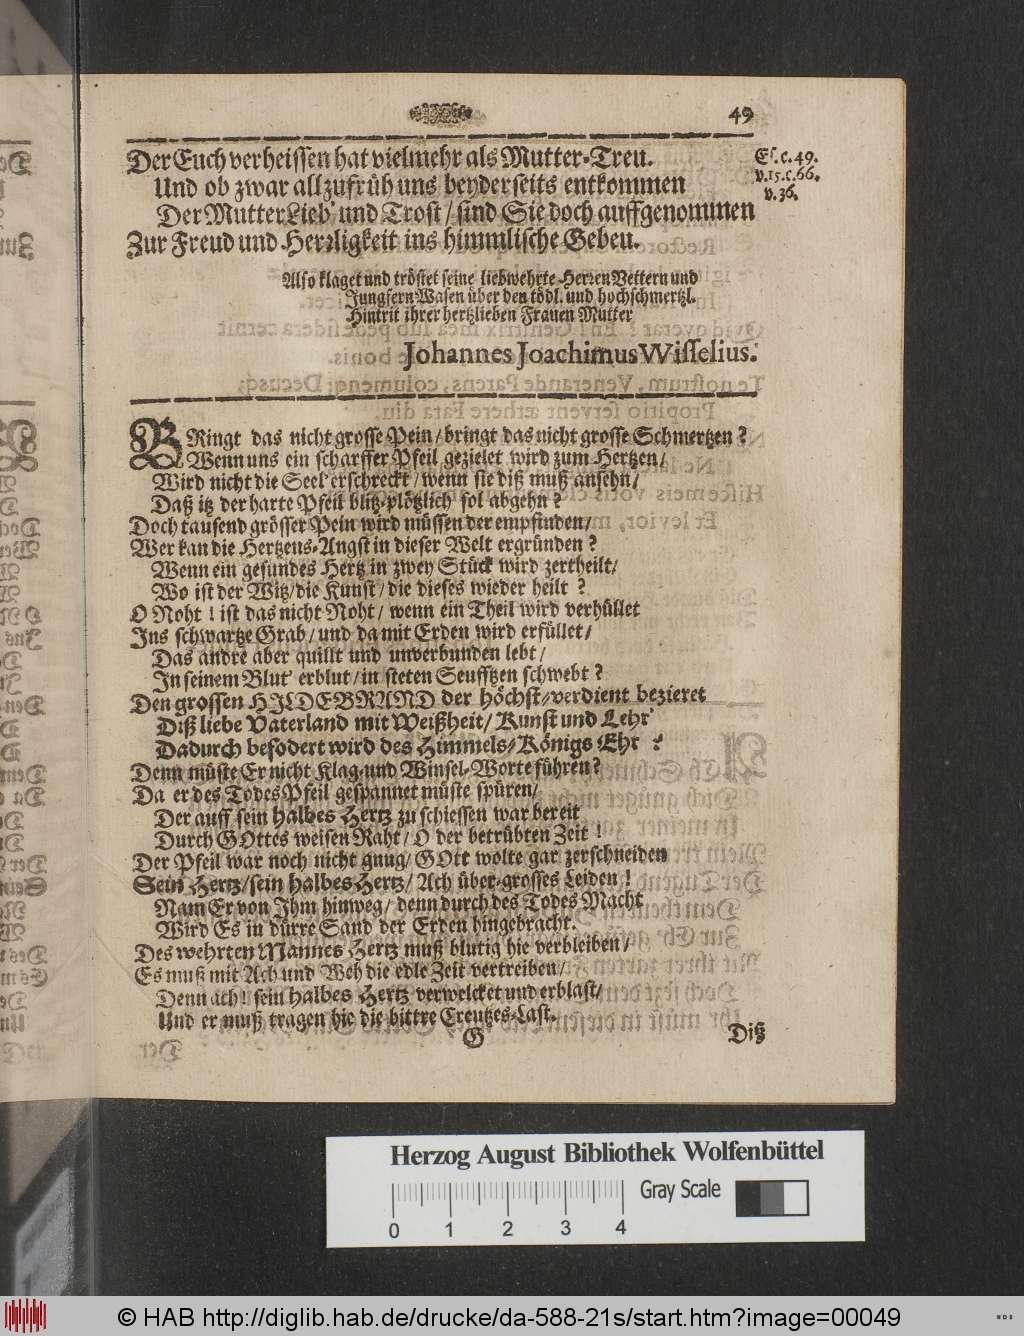 49
Der Euch verheissen hat vielmehr als Mutter-Treu.
Es. c. 49.
v. 15. c. 66.
v. 36.
Und ob zwar allzufrüh uns beyderseits entkommen
Der Mutter Lieb' und Trost / sind Sie doch auffgenommen
Zur Freud und Herꝛligkeit ins himmlische Gebeu.
Also klaget und tröstet seine liebwehrte Herꝛen Vettern und
Jungfern Wasen über den tödl. und hochschmertzl.
Hintrit ihrer hertzlieben Frauen Mutter
Johannes Joachimus Wisselius.
BRingt das nicht grosse Pein / bringt das nicht grosse Schmertzen ?
Wenn uns ein scharffer Pfeil gezielet wird zum Hertzen /
Wird nicht die Seel' erschreckt / wenn sie diß muß ansehn /
Daß itz der harte Pfeil blitz-plötzlich sol abgehn ?
Doch tausend grösser Pein wird müssen der empfinden /
Wer kan die Hertzens-Angst in dieser Welt ergründen ?
Wenn ein gesundes Hertz in zwey Stück wird zertheilt /
Wo ist der Witz / die Kunst / die dieses wieder heilt ?
O Noht ! ist das nicht Noht / wenn ein Theil wird verhüllet
Ins schwartze Grab / und da mit Erden wird erfüllet /
Das andre aber quillt und unverbunden lebt /
In seinem Blut' erblut / in steten Seufftzen schwebt ?
Den grossen HILDEBRAND der höchst-verdient bezieret
Diß liebe Vaterland mit Weißheit / Kunst und Lehr'
Dadurch befodert wird des Himmels-Königs Ehr ?
Denn müste Er nicht Klag-und Winsel-Worte führen ?
Da er des Todes Pfeil gespannet müste spüren /
Der auff sein halbes Hertz zu schiessen war bereit
Durch GOttes weisen Raht / O der betrübten Zeit !
Der Pfeil war noch nicht gnug / GOtt wolte gar zerschneiden
Sein Hertz / sein halbes Hertz / Ach über-grosses Leiden !
Nam Er von Ihm hinweg / denn durch des Todes Macht
Wird Es in dürre Sand der Erden hingebracht.
Des wehrten Mannes Hertz muß blutig hie verbleiben /
Es muß mit Ach und Weh die edle Zeit vertreiben /
Denn ach ! sein halbes Hertz verwelcket und erblast /
Und er muß tragen hie die bittre Creutzes-Last.
G
Diß
Herzog August Bibliothek Wolfenbüttel
0 1 2 3 4
Gray Scale
© HAB http://diglib.hab.de/drucke/da-588-21s/start.htm?image=00049